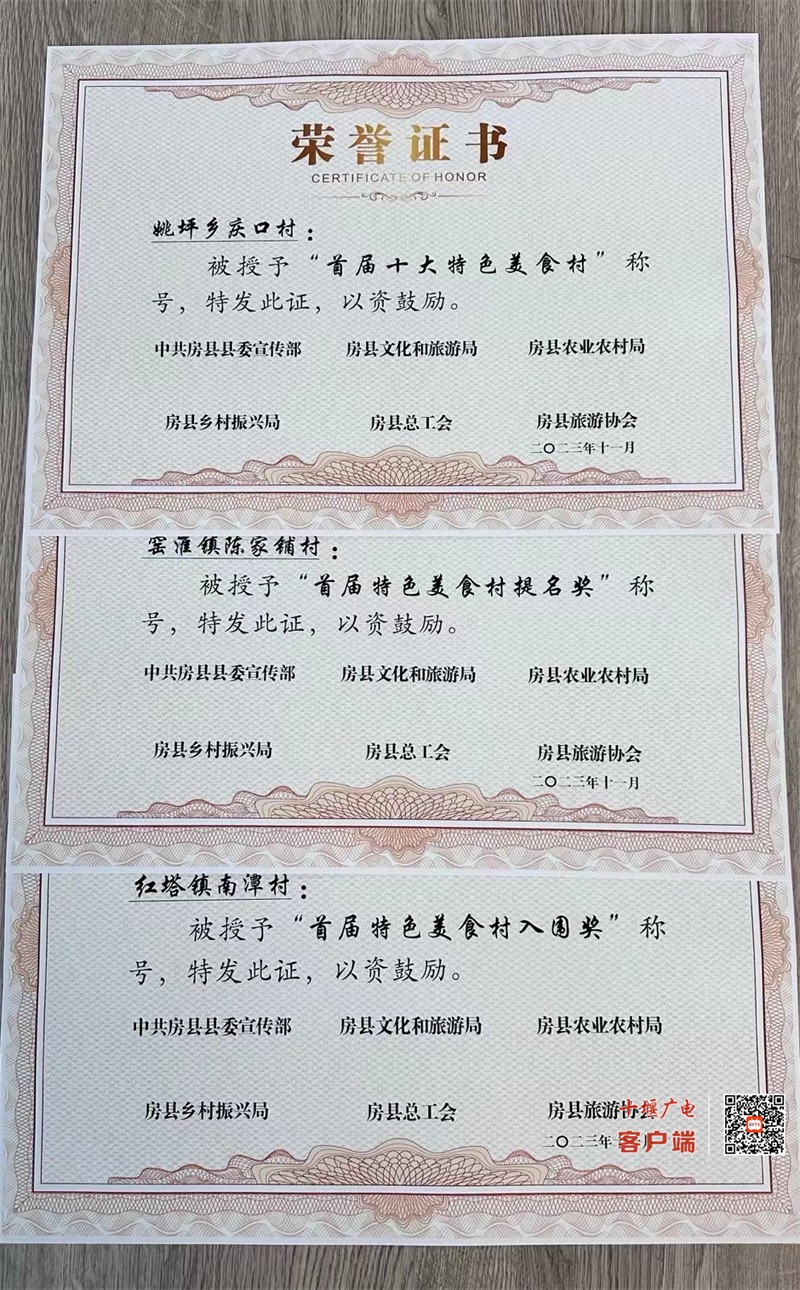 荣誉证书
CERTIFICATE OF HONOR
姚坪乡庆口村：
被授予“首届十大特色美食村”称
号，特发此证，以资鼓励。
中共房县县委宣传部 房县文化和旅游局 房县农业农村局
房县乡村振兴局 房县总工会 房县旅游协会
二〇二三年十一月
窑淮镇陈家铺村：
被授予“首届特色美食村提名奖”称
号，特发此证，以资鼓励。
中共房县县委宣传部 房县文化和旅游局 房县农业农村局
房县乡村振兴局 房县总工会 房县旅游协会
二〇二三年十一月
红塔镇南潭村：
被授予“首届特色美食村入围奖”称
号，特发此证，以资鼓励。
中共房县县委宣传部 房县文化和旅游局 房县农业农村局
房县乡村振兴局 房县总工会 房县旅游协会
二〇二三年 月
十堰广电
客户端